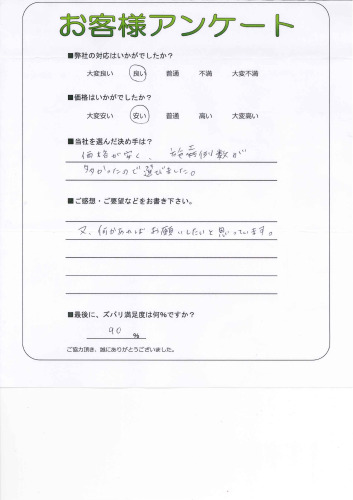 お客様アンケート
■弊社の対応はいかがでしたか?
大変良い 良い 普通 不満 大変不満
■価格はいかがでしたか?
大変安い 安い 普通 高い 大変高い
■当社を選んだ決め手は?
価格が安く、施工例数が
多かったので選びました。
■ご感想・ご要望などをお書き下さい。
又、何かあればお願いしたいと思っています。
■最後に、ズバリ満足度は何%ですか?
90 %
ご協力頂き、誠にありがとうございました。